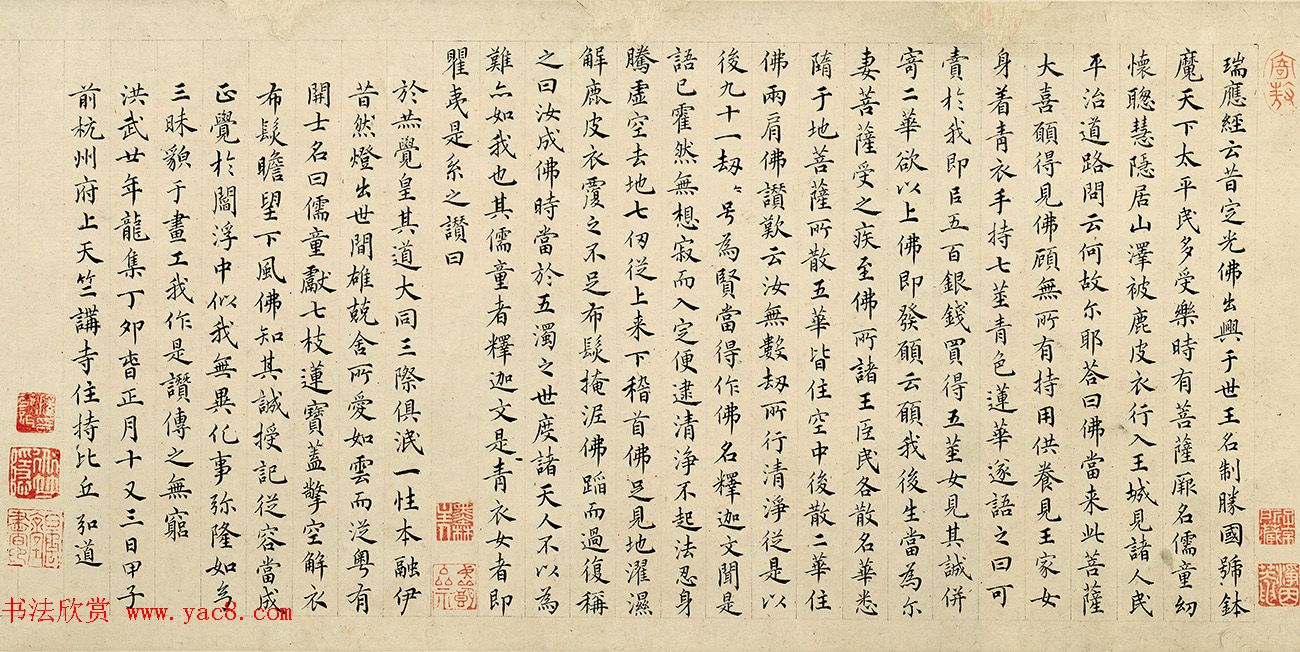 瑞應經云昔定光佛出興于世王名制勝國號鉢
魔天下太平民多受樂時有菩薩厥名儒童幼
懷聰慧隱居山澤被鹿皮衣行入王城見諸人民
平治道路問云何故尓耶荅曰佛當来此菩薩
大喜願得見佛顧無所有持用供養見王家女
身着青衣手持七莖青色蓮華逐語之曰可
賣於我即㠯五百銀錢買得五莖女見其誠併
寄二華欲以上佛即發願云願我後生當為尔
妻菩薩受之疾至佛所諸王臣民各散名華悉
隋于地菩薩所散五華皆住空中後散二華住
佛兩肩佛讃歎云汝無數劫所行清淨從是以
後九十一劫〻号為賢當得作佛名釋迦文聞是
語已霍然無想寂而入定便逮清浄不起法忍身
騰虛空去地七仞從上来下稽首佛足見地濯濕
解鹿皮衣覆之不足布髮掩泥佛蹈而過復稱
之曰汝成佛時當於五濁之世度諸天人不以為
難亦如我也其儒童者釋迦文是青衣女者即
瞿夷是系之讃曰
於燕覺皇其道大同三際俱泯一性本融伊
昔然燈出世間雄兢舍所愛如雲而從粤有
開士名曰儒童獻七枝蓮寶蓋擎空解衣
布髮瞻望下風佛知其誠授記從容當成
正覺於閻浮中似我無異化事弥隆如多
三昧貌于畫工我作是讃傳之無窮
洪武廿年龍集丁夘旹正月十又三日甲子
前杭州府上天竺講寺住持比丘 弘道
书法欣赏 www.yac8.com